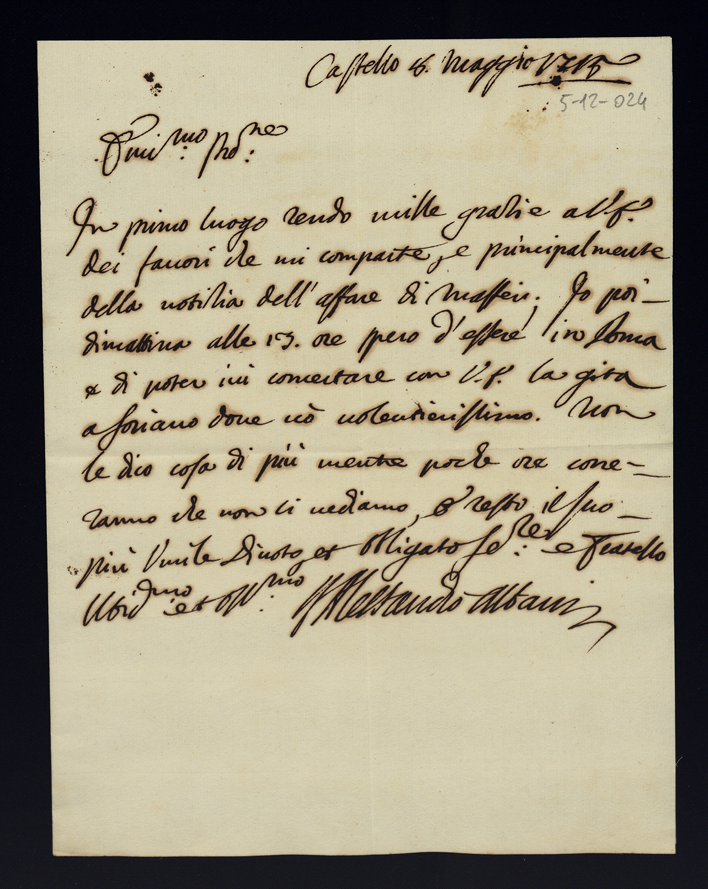 Castello 8. Maggio 1715
5-12-024
Emi.mo Pro.ne
In primo luogo rendo mille grazie a V.E.
dei favori che mi comparte, e principalmente
della notitia dell'affare di Maffei. Io poi
dimattina alle 13. ore spero d'essere in Roma
e di poter ivi concertare con V.E. la gita
a Soriano dove vò volentierissimo. Non
le dico cosa di più mentre poche ore corre-
ranno che non ci vediamo, e resto il suo
più Umile Divoto, et Obligato Se.re e Fratello
Ubid.mo et Oss.mo Alessandro Albani